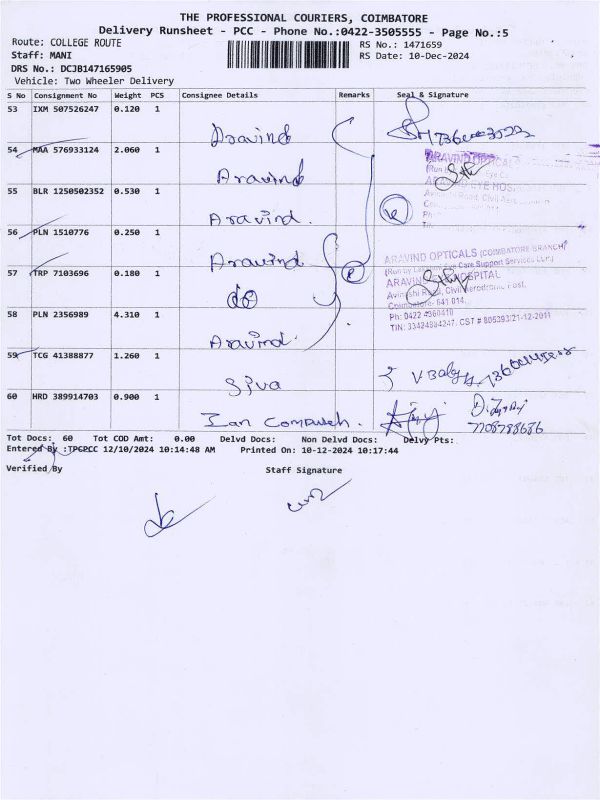 THE PROFESSIONAL COURIERS, COIMBATORE
Delivery Runsheet - PCC - Phone No.:0422-3505555 - Page No.:5
Route: COLLEGE ROUTE
RS No.: 1471659
Staff: MANI
RS Date: 10-Dec-2024
DRS No.: DCJB147165905
Vehicle: Two Wheeler Delivery
S No Consignment No Weight PCS Consignee Details Remarks Seal & Signature
53 IXM 507526247 0.120 1
Aravind
54 MAA 576933124 2.060 1
Aravind
ARAVIND OPTICALS
55 BLR 1250502352 0.530 1
Aravind.
56 PLN 1510776 0.250 1
Aravind
ARAVIND OPTICALS (COIMBATORE BRANCH)
57 TRP 7103696 0.180 1
do
HOSPITAL
Coimbatore- 641 014.
58 PLN 2356989 4.310 1
Ph: 0422 4360410
Aravind.
59 TCG 41388877 1.260 1
Siva
60 HRD 389914703 0.900 1
7708788686
Tot Docs: 60 Tot COD Amt: 0.00 Delvd Docs: Non Delvd Docs: Delvy Pts:
Entered By :TPCPCC 12/10/2024 10:14:48 AM Printed On: 10-12-2024 10:17:44
Verified By Staff Signature